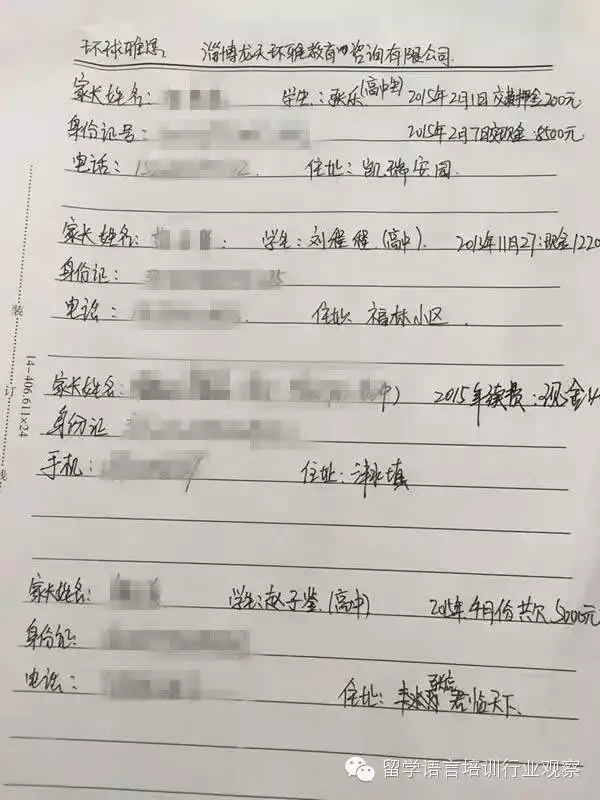 环球雅思: 淄博龙天环雅教育咨询有限公司.
家长姓名: 学生:张乐(高中生) 2015年2月1日交押金200元
身份证号: 2015年2月7日交现金8500元
电话: 15 2. 住址:凯瑞安园.
家长姓名: 学生:刘程程(高中). 2013年11月27:现金1220
身份证: 5
电话: 住址: 福林小区.
家长姓名: 中) 2015年续费:现金
身份证
手机: 住址:沣水填
家长姓名: 学生:赵子鉴(高中) 2015年4月份共欠5000元
身份证:
电话: 住址: 张店 君临天下.
装 订 线
14-406.611×24
留学语言培训行业观察